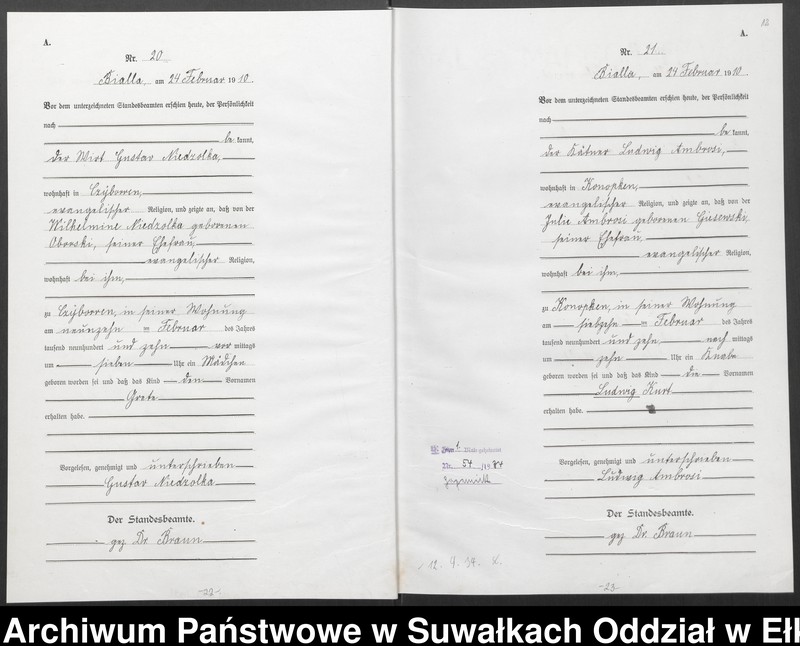 A.
Nr. 20
Bialla, am 24 Februar 1910.
Vor dem unterzeichneten Standesbeamten erschien heute, der Persönlichkeit
nach
be kannt,
der Wirt Gustav Niedzolka,
wohnhaft in Czyborren,
evangelischer Religion, und zeigte an, daß von der
Wilhelmine Niedzolka geborenen
Oborski, seiner Ehefrau
evangelischer Religion,
wohnhaft bei ihm,
zu Czyborren, in seiner Wohnung
am neunzehn ten Februar des Jahres
tausend neunhundert und zehn vor mittags
um sieben Uhr ein Mädchen
geboren worden sei und daß das Kind den Vornamen
Grete
erhalten habe.
Vorgelesen, genehmigt und unterschrieben
Gustav Niedzolka
Der Standesbeamte.
gez. Dr. Braun
-22-
12
A.
Nr. 21
Bialla, am 24 Februar 1910.
Vor dem unterzeichneten Standesbeamten erschien heute, der Persönlichkeit
nach
be kannt,
der Kätner Ludwig Ambrosi,
wohnhaft in Konopken,
evangelischer Religion, und zeigte an, daß von der
Julie Ambrosi geborenen Gusewski,
seiner Ehefrau
evangelischer Religion,
wohnhaft bei ihm,
zu Konopken, in seiner Wohnung
am siebzehn ten Februar des Jahres
tausend neunhundert und zehn nach mittags
um zehn Uhr ein Knabe
geboren worden sei und daß das Kind die Vornamen
Ludwig Kurt
erhalten habe.
Vorgelesen, genehmigt und unterschrieben
Ludwig Ambrosi
Der Standesbeamte.
gez. Dr. Braun
-23-
Nr. 54
12. 4. 39.
Archiwum Państwowe w Suwałkach Oddział w Ełk